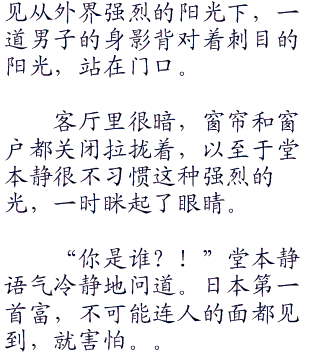 见从外界强烈的阳光下，一
道男子的身影背对着刺目的
阳光，站在门口。
客厅里很暗，窗帘和窗
户都关闭拉拢着，以至于堂
本静很不习惯这种强烈的
光，一时眯起了眼睛。
“你是谁？！”堂本静
语气冷静地问道。日本第一
首富，不可能连人的面都见
到，就害怕。。